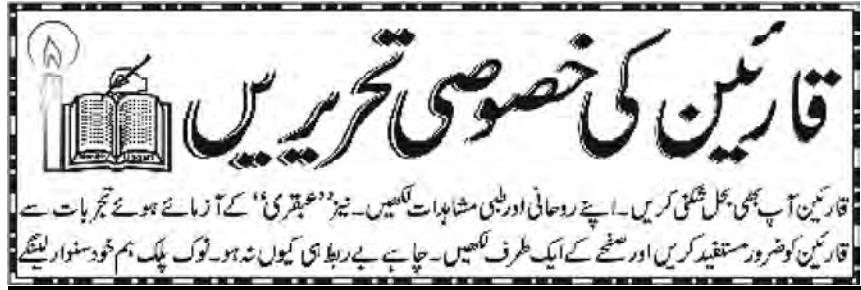 قارئین کی خصوصی تحریریں
قارئین آپ بھی بخل شکنی کریں۔ اپنے روحانی اور طبی مشاہدات لکھیں۔ نیز ’’عبقری‘‘ کے آزمائے ہوئے تجربات سے
قارئین کو ضرور مستفید کریں اور صفحے کے ایک طرف لکھیں۔ چاہے بے ربط ہی کیوں نہ ہو۔ نوک پلک ہم خود سنوار لینگے